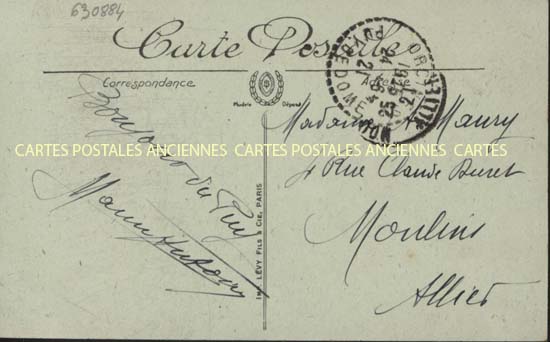 630884
Carte Postale
Correspondance
Adresse
Modèle Déposé
Bonjour du Puy
Madame Maury
4 Rue Claude Duret
Moulins
Allier
IMP. LÉVY FILS & CIE, PARIS
PUY-DE-DOME
CARTES POSTALES ANCIENNES CARTES POSTALES ANCIENNES CARTES